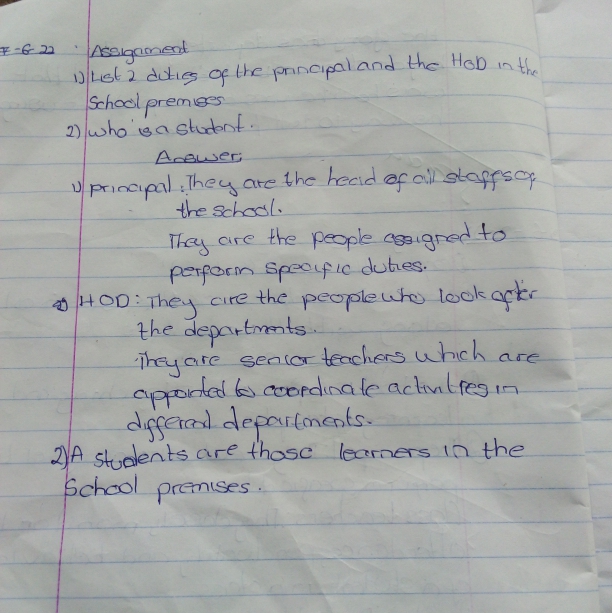 7-6-22 Assignment
1) List 2 duties of the principal and the HOD in the
School premises
2) who is a student.
Answer
1) principal: They are the head of all staffs of
the school.
They are the people assigned to
perform specific duties.
HOD: They are the people who look after
the departments.
They are senior teachers which are
appointed to coordinate activities in
different departments.
2) A students are those learners in the
School premises.